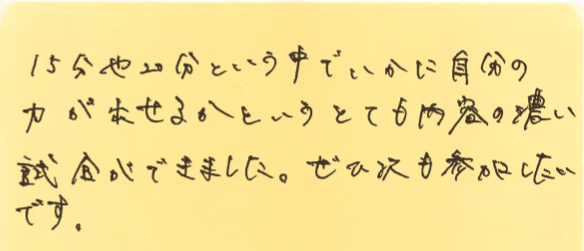 15分や20分という中でいかに自分の
力が出せるかというとても内容の濃い
試合ができました。ぜひ次も参加したい
です。